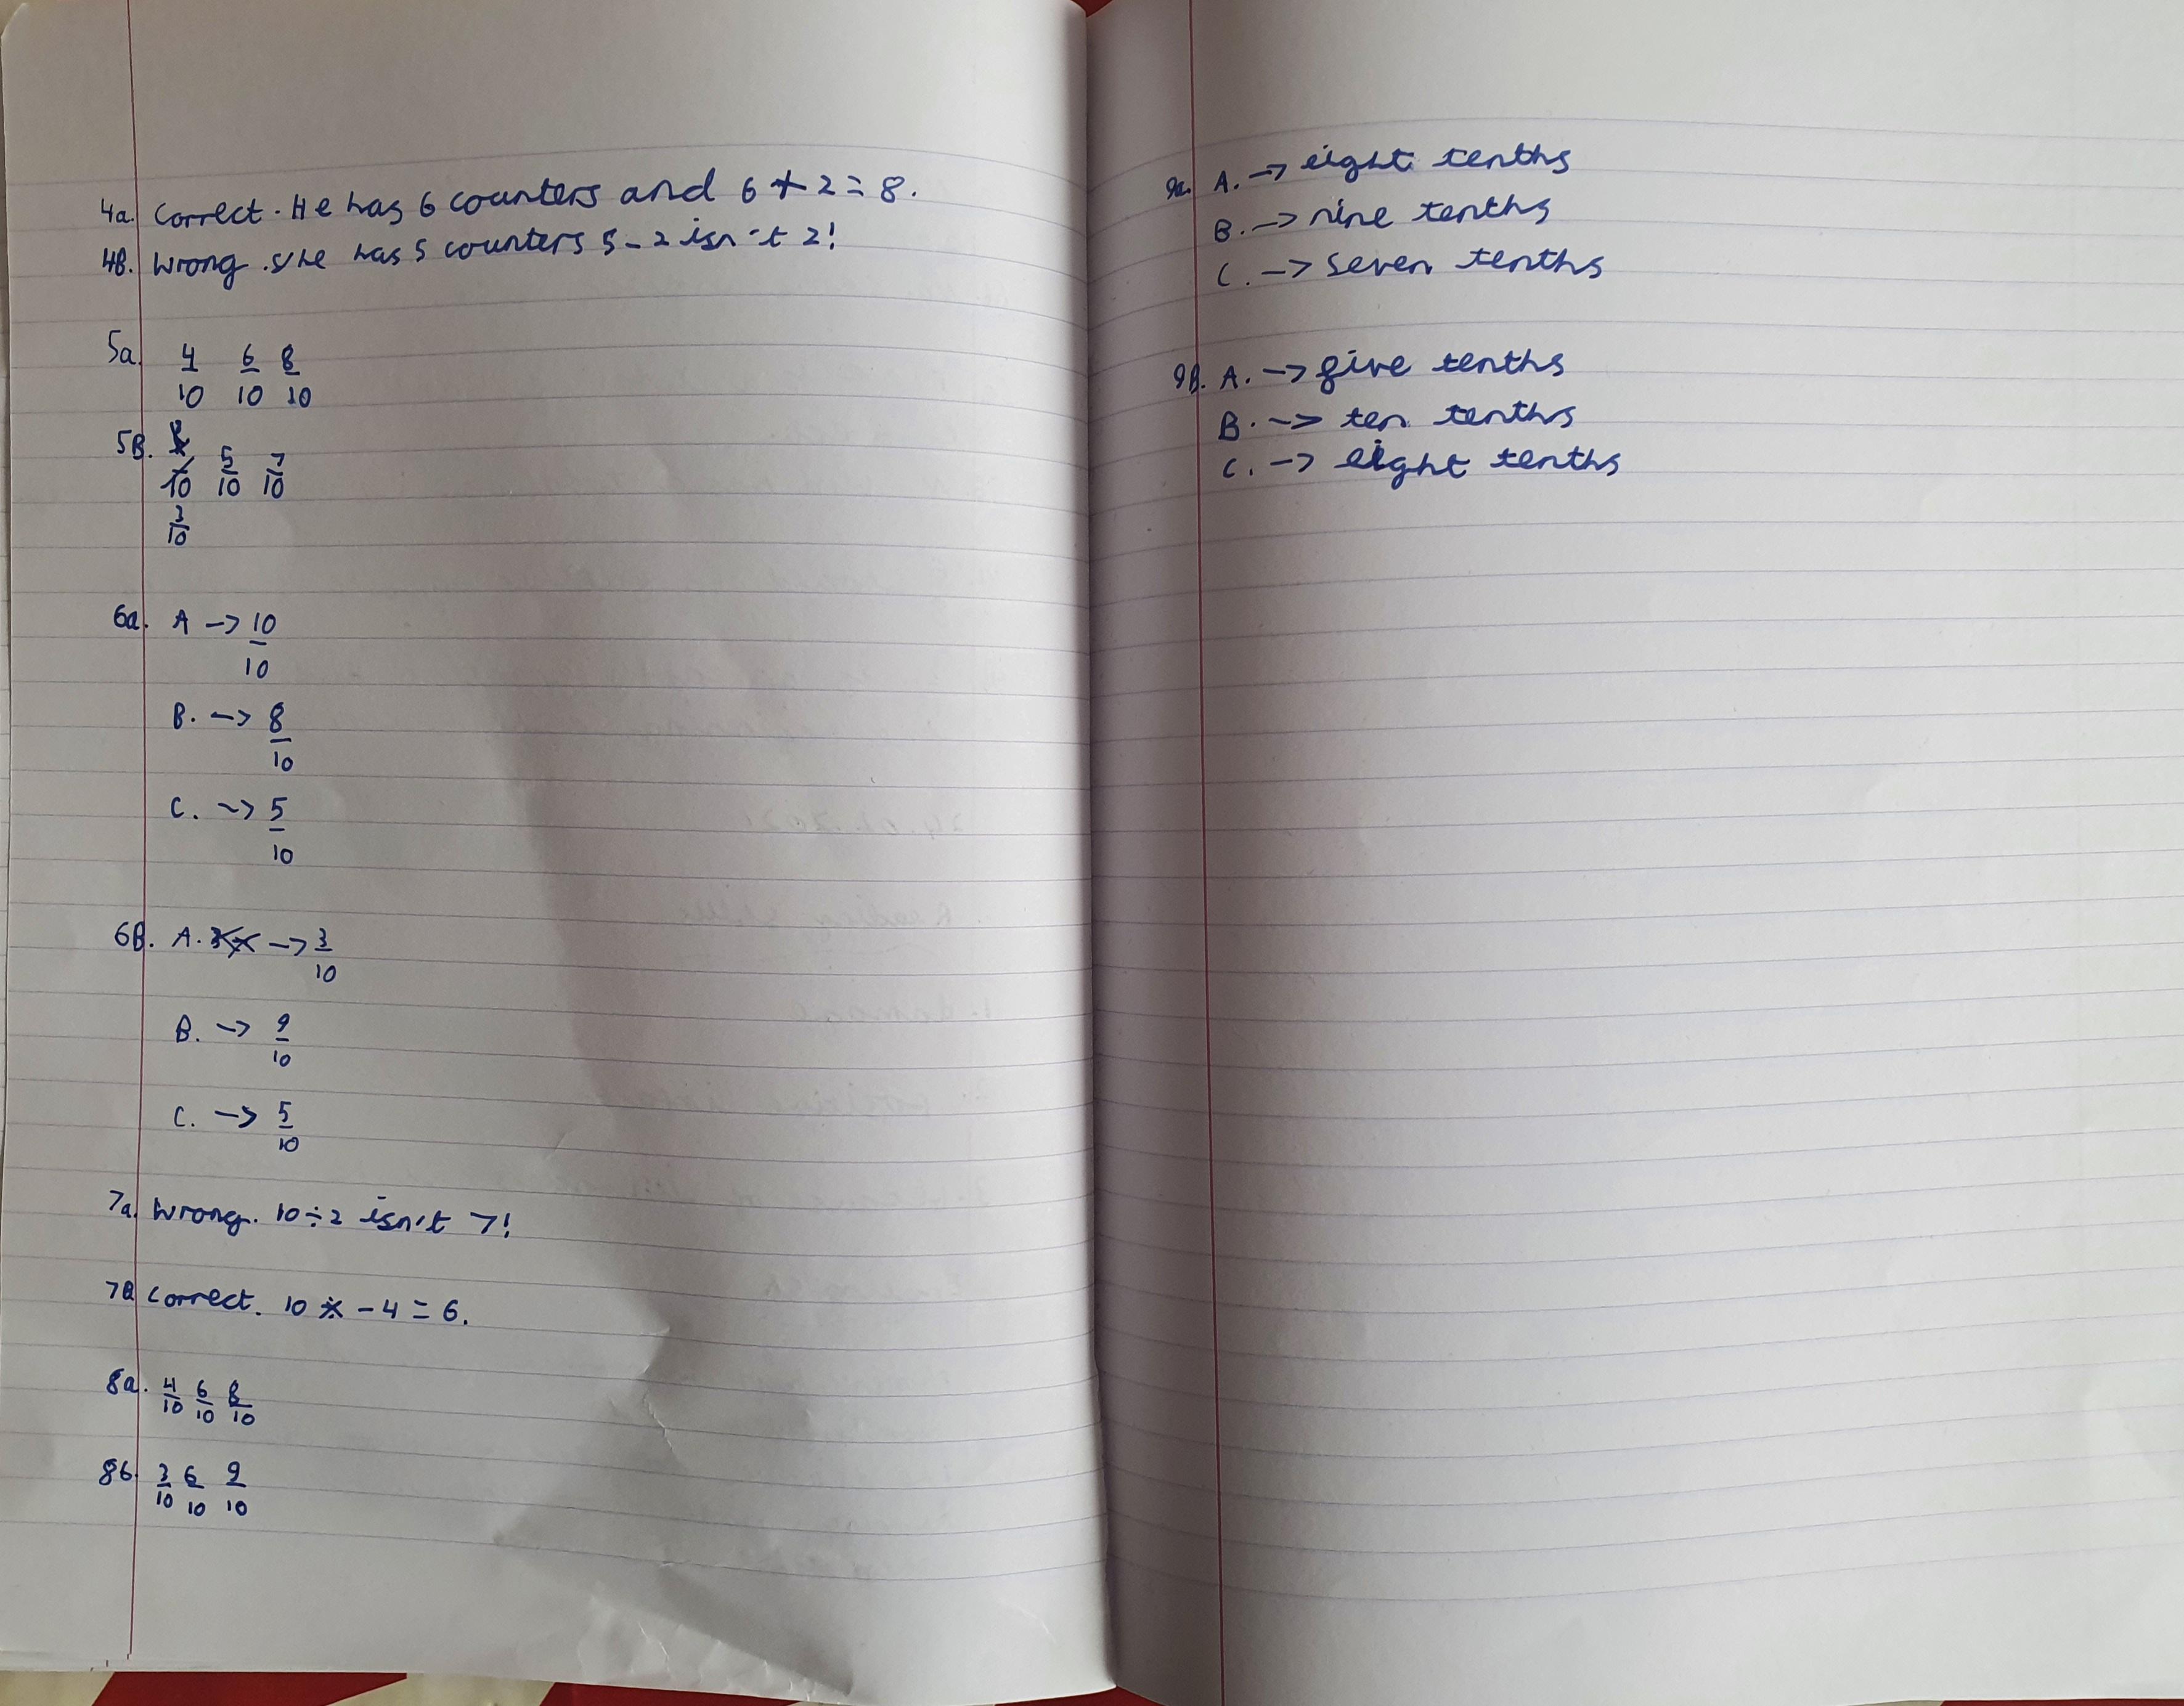 4a. Correct. He has 6 counters and 6 + 2 = 8.
4B. Wrong. She has 5 counters 5 - 2 isn't 2!
5a. 4/10 6/10 8/10
5B. 5/10 7/10
3/10
6a. A → 10/10
B. → 8/10
C. → 5/10
6B. A. → 3/10
B. → 9/10
C. → 5/10
7a. Wrong. 10 ÷ 2 isn't 7!
7B Correct. 10 - 4 = 6.
8a. 4/10 6/10 8/10
8b. 3/10 6/10 9/10
9a. A. → eight tenths
B. → nine tenths
C. → seven tenths
9B. A. → five tenths
B. → ten tenths
C. → eight tenths